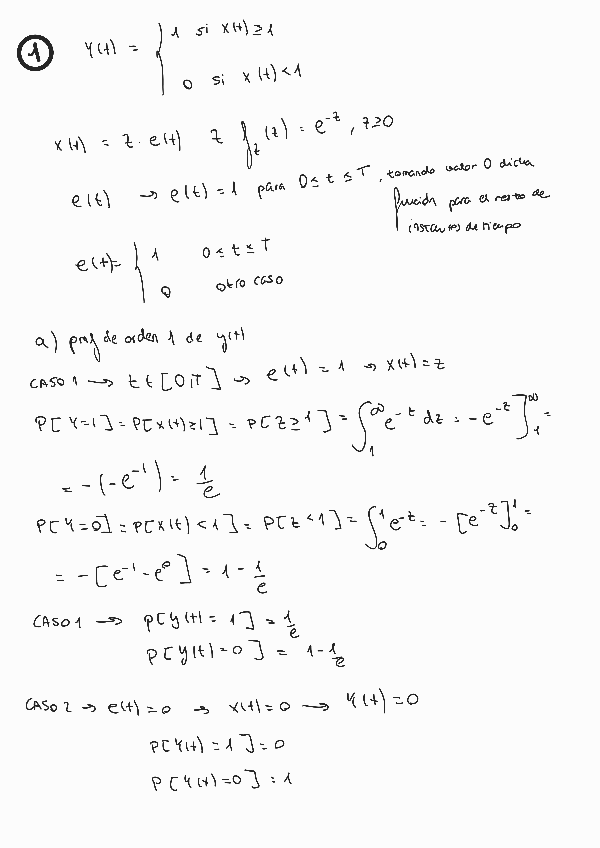 1 Y(t) = { 1 si X(t) ≥ 1
0 si X(t) < 1
X(t) = Z · e(t) Z f_z(z) = e^{-z}, z ≥ 0
e(t) → e(t) = 1 para 0 ≤ t ≤ T, tomando valor 0 dicha
función para el resto de
instantes de tiempo
e(t) = { 1 0 ≤ t ≤ T
0 otro caso
a) pmf de orden 1 de y(t)
CASO 1 → t ∈ [0,T] → e(t) = 1 → X(t) = Z
P[Y=1] = P[X(t) ≥ 1] = P[Z ≥ 1] = ∫_1^∞ e^{-z} dz = -e^{-z}]_1^∞ =
= -(-e^{-1}) = 1/e
P[Y=0] = P[X(t) < 1] = P[Z < 1] = ∫_0^1 e^{-z} = -[e^{-z}]_0^1 =
= -[e^{-1} - e^0] = 1 - 1/e
CASO 1 → P[Y(t) = 1] = 1/e
P[Y(t) = 0] = 1 - 1/e
CASO 2 → e(t) = 0 → X(t) = 0 → Y(t) = 0
P[Y(t) = 1] = 0
P[Y(t) = 0] = 1